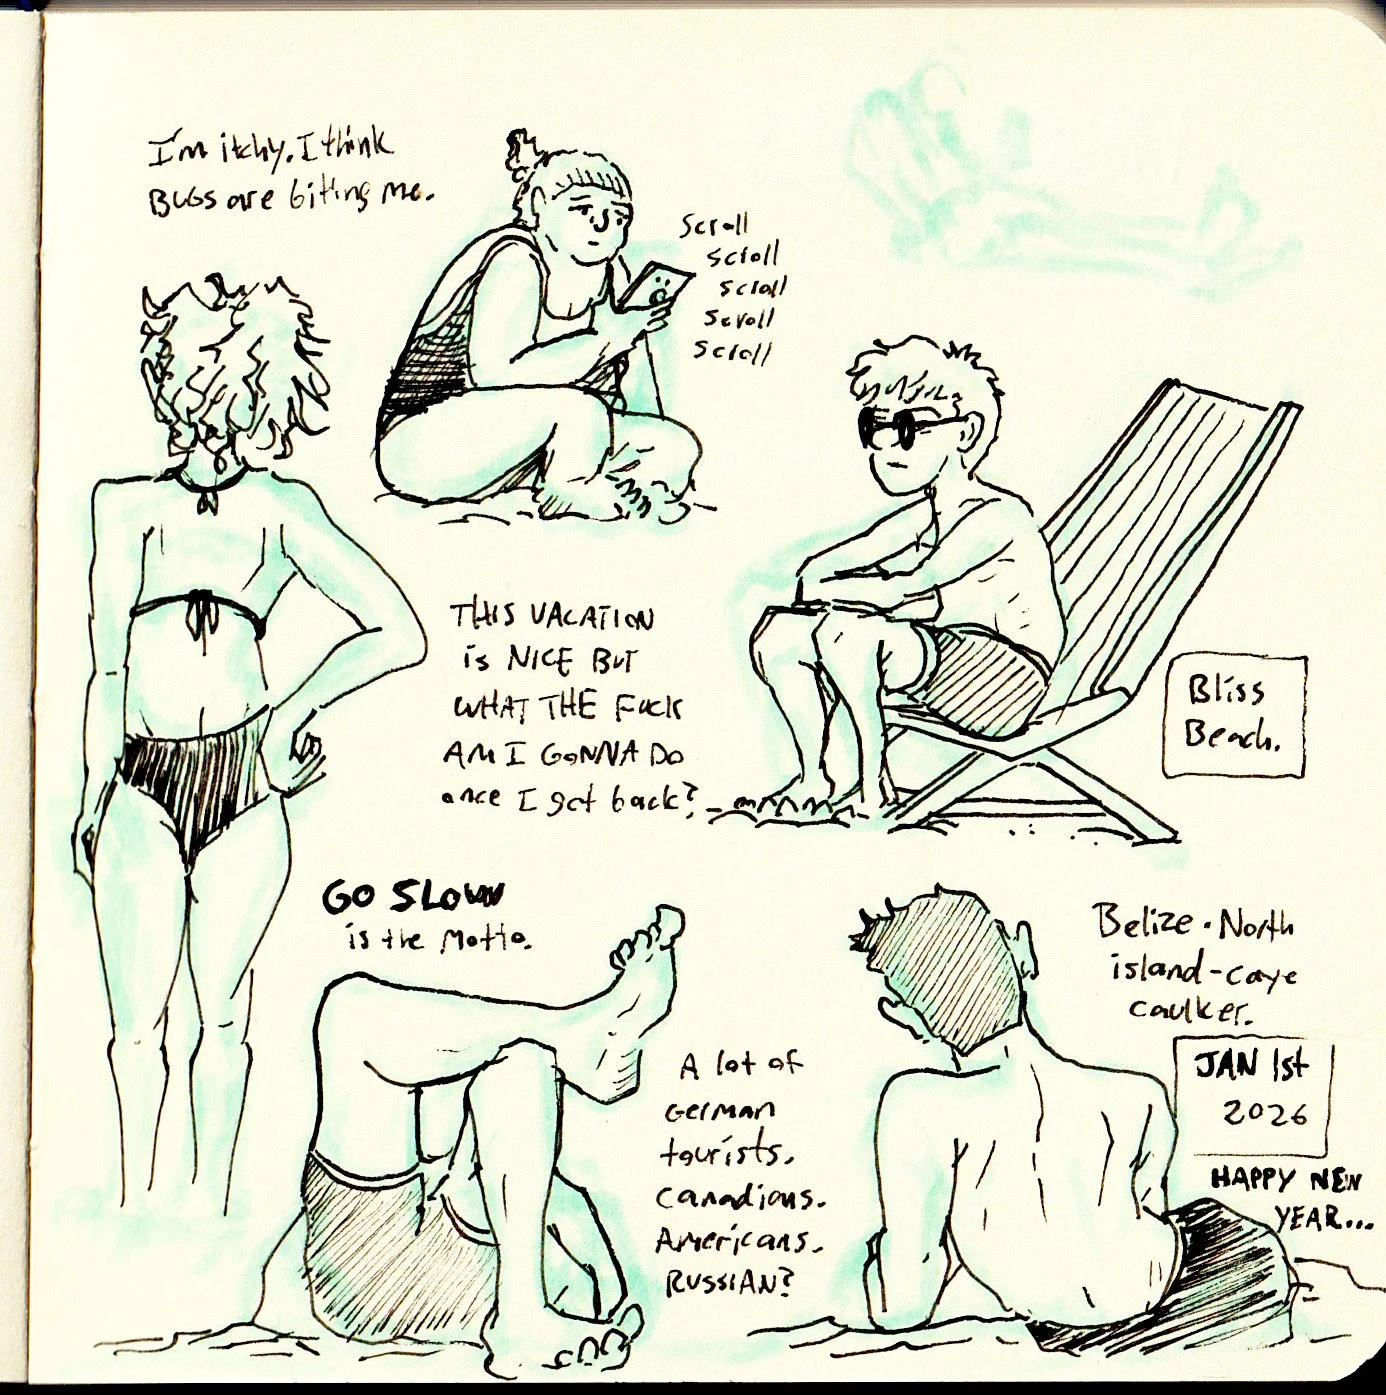 I'm itchy. I think
BUGS are biting me.
Scroll
Scroll
Scroll
Scroll
Scroll
THIS VACATION
is NICE BUT
WHAT THE FUCK
AM I GONNA DO
once I get back?
Bliss
Beach.
GO SLOW
is the motto.
A lot of
German
tourists.
Canadians.
Americans.
RUSSIAN?
Belize · North
island - caye
caulker.
JAN 1st
2026
HAPPY NEW
YEAR...